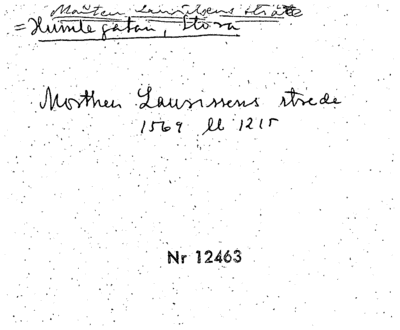 Mårten Lauritsens sträte
= Humlegatan, Stora
Morthen Laurissens strede
1569 ll 1215
Nr 12463